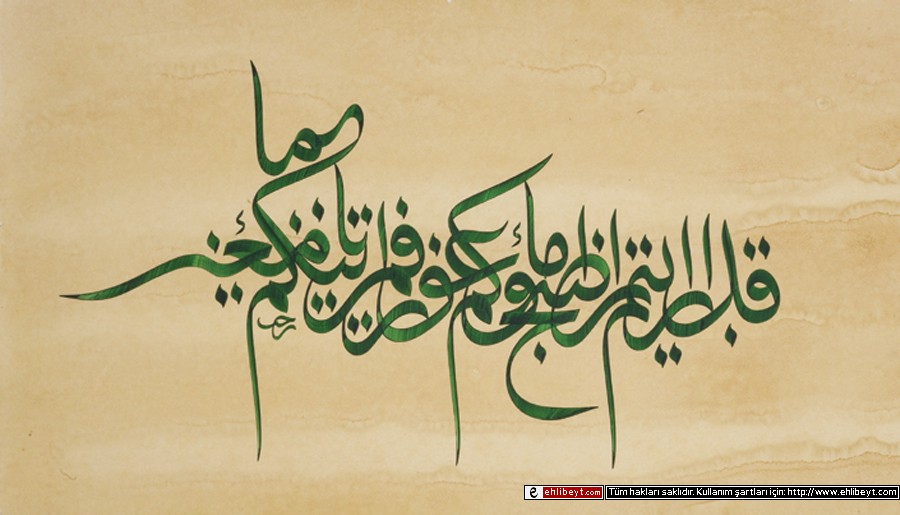 قل ارايتم ان اصبح ماؤكم غورا فمن ياتيكم بماء معين
ehlibeyt.com Tüm hakları saklıdır. Kullanım şartları için: http://www.ehlibeyt.com